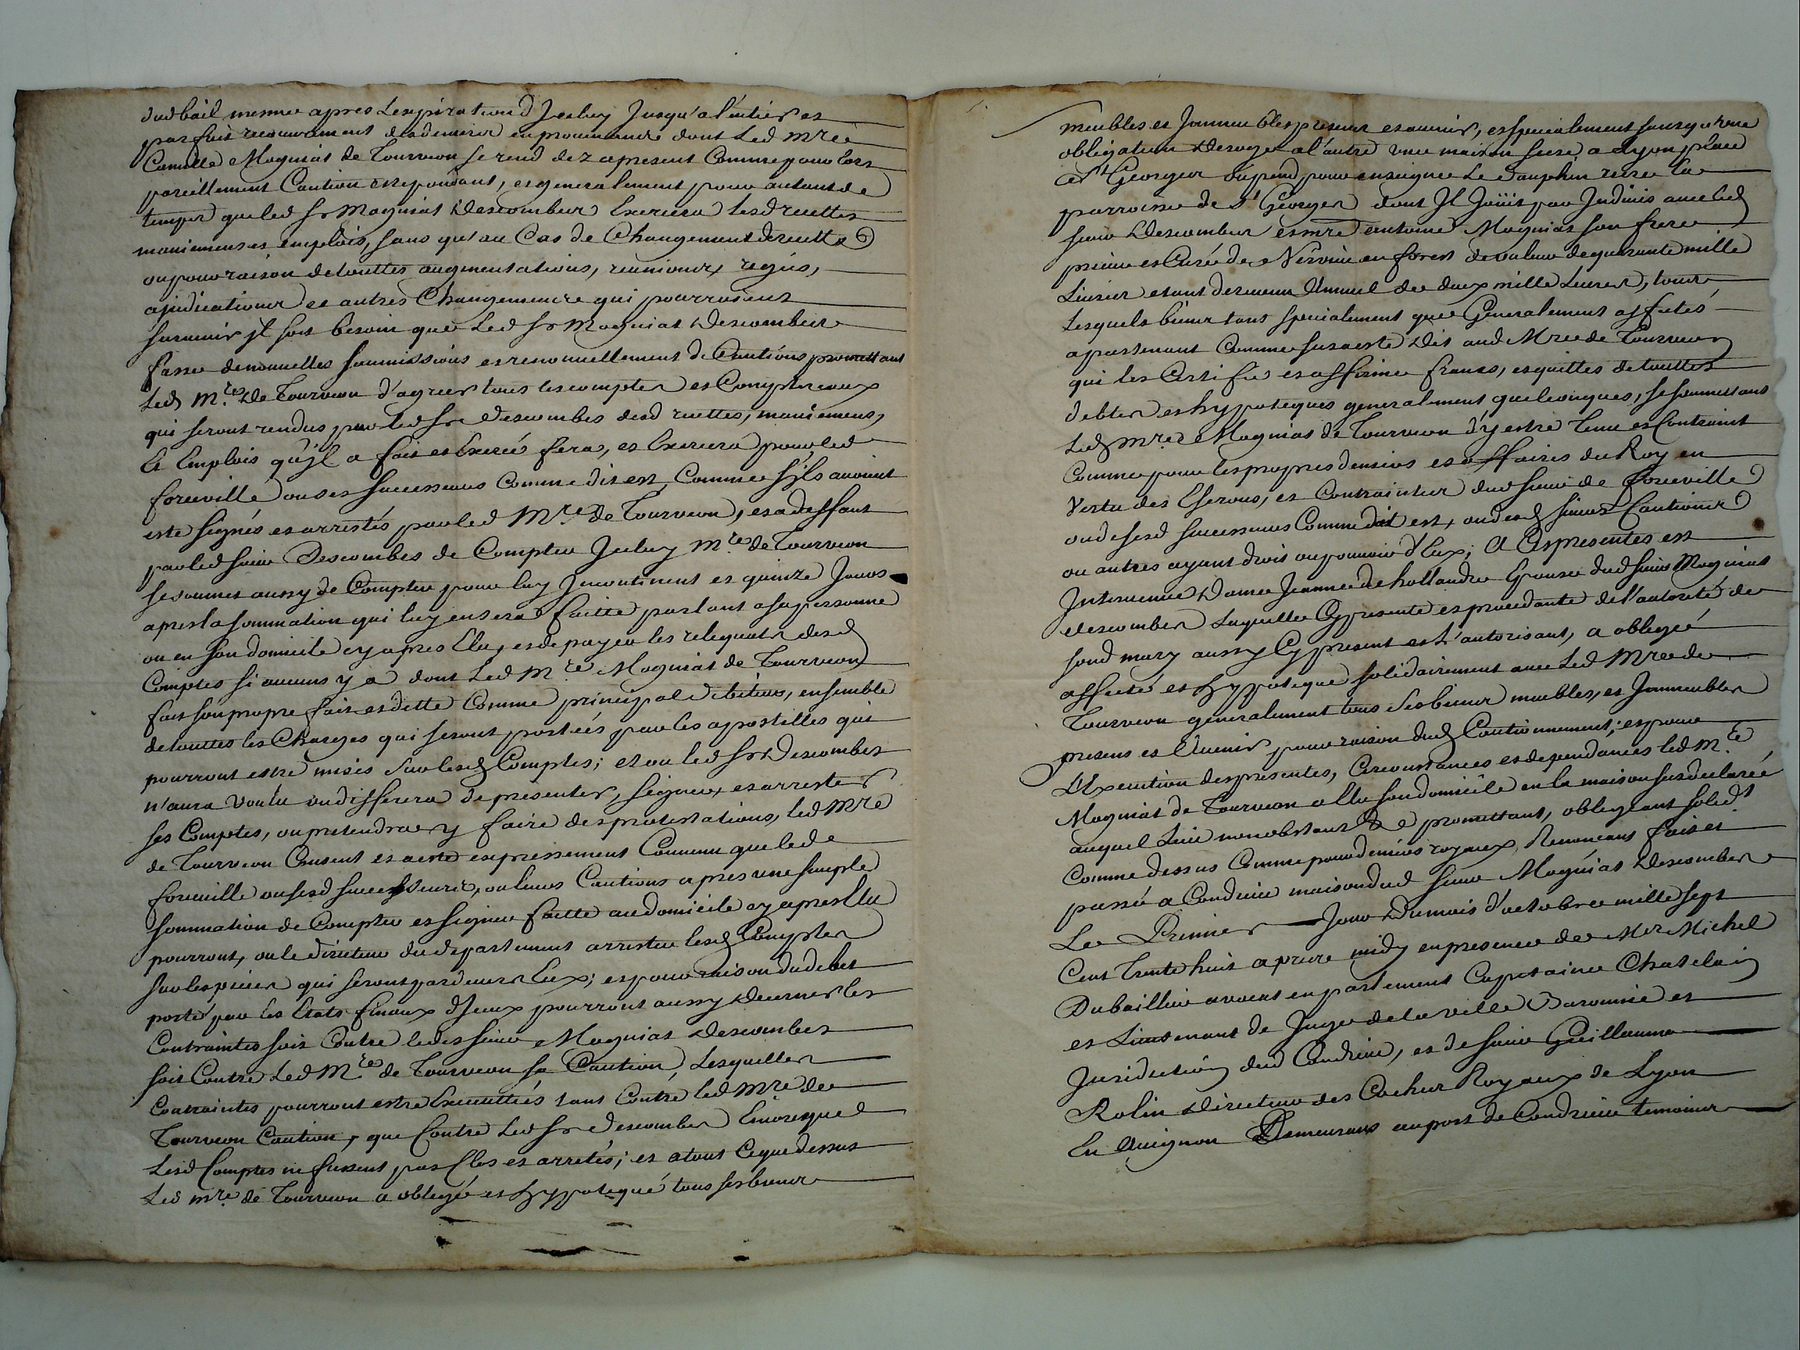 dud bail mesme apres Lexpiration d'Jceluy Jusqu'a l'entier et
parfait recouvrement desdeniers en provenants dont Led mre
Camille Magniat de Tourveon se rend dez apresent Comme pour lors
pareillement Caution et repondant, et generalement pour autant de
temps que led Sr Magniat Descombes Exercera lesd recettes
maniemens et emplois, sans qu'au Cas de Changement de recette
ou pour raison de touttes augmentations, reunions, regies,
ajudications et autres Changements qui pourroient
survenir jl soit besoin que Led Sr Magniat Descombes
fasse de nouvelles soumissions et renouvellement de Cautions promettant
Led Mre de Tourveon d'agreer tous les comptes et Comptereaux
qui seront rendus par led Sr Descombes desd recettes, maniemens,
Et Emplois qu'jl a fait et Exercé fera, et Exercera pour led
forceville ou ses successeurs Comme dit est, Comme s'jls avoient
esté signés et arrestés par led Mre de Tourveon, et a deffaut
par led sieur Descombes de Compter Jceluy Mre de Tourveon
se soumet aussy de Compter pour luy Jncontinent et quinze Jours
apres la sommation qui luy en sera faitte parlant a sa personne
ou en son domicile cy apres Elu, et de payer les reliquats desd
Comptes si aucuns y a dont Led Mre Magniat de Tourveon
fait son propre fait et dette Comme principal debiteur, ensemble
de touttes les Charges qui seront portées par les apostilles qui
pourront estre mises sur lesd Comptes; et ou led Sr Descombes
n'aura voulu ou differera de presenter, signer, et arrester
ses Comptes, ou pretendra y faire des protestations, led Mre
de Tourveon Consent et a esté expressement Convenu que led
forceville ou sesd successeurs, ou leurs Cautions apres une simple
sommation de Compter et signer faitte au domicile cy apres Elu
pourront, ou le directeur du departement arrester lesd Comptes
sur les pieces qui seront pardevers Eux; et pour raison du debet
porté par les Etats finaux d'Jceux pourront aussy decerner les
Contraintes soit Contre ledit sieur Magniat Descombes
soit Contre Led Mre de Tourveon sa Caution, Lesquelles
Contraintes pourront estre Executées tant Contre led Mre de
Tourveon Caution, que Contre Led Sr Descombes Encore que
Lesd Comptes ne fussent par Elles et arretés; et a tout Ce que dessus
Led Mre de Tourveon a obligé et hypotequé tous ses biens
meubles et Jmmeubles presens et avenir, et specialement sans qu'une
obligation deroge a l'autre une maison sise a Lyon place
de St Georges ou pend pour enseigne Le dauphin rue La
parroisse de St Georges dont Jl Jouit par Jndivis avec led
sieur Descombes et mre antoine Magniat son frere
prieur et Curé de Nervieu en forest de valeur de quarante mille
Livres et un de revenu annuel de deux mille Livres, tous
Lesquels biens tant specialement que Generalement affectés
apartenant Comme sus a esté dit aud Mre de Tourveon
qui les Certifie et affirme francs, et quittes de touttes
debtes et hypoteques generalement quelconques, se soumettant
Led mre Magniat de Tourveon d'y estre tenu et Contraint
Comme pour les propres deniers et affaires du Roy en
Vertu des Ecrous, et Contraintes dud sieur de forceville
ou de sesd successeurs Comme dit est, ou desd sieurs Cautions
ou autres ayant droit ou pouvoir d'Eux; A Ces presentes est
Jntervenue Dame Jeanne de hollande Epouse dud sieur Magniat
descombes Laquelle Cy presente et procedante de l'autorité de
sond mary aussy Cy present et L'autorisant, a obligé
affecté et hypoteque solidairement avec Led Mre de
Tourveon generalement tous ses biens meubles, et Jmmeubles
presens et Avenir pour raison dud Cautionnement; et pour
L'Execution des presentes, Circonstances et dependances led Mre
Magniat de Tourveon a Elu son domicile en la maison sus declarée
auquel Lieu nonobstant &c promettant, obligeant solidt
Comme dessus Comme pour deniers royaux, Renonceant fait et
passé a Condrieu maison dud sieur Magniat Descombes
Le Premier Jour du mois d'octobre mille sept
Cent Trente huit apres midy en presence de Mre Michel
Dubaillier avocat en parlement Capitaine Chatelain
et Lieutenant de Juge de la ville Baronnie et
Jurisdiction dud Condrieu, et de sieur Guillaume
Rolin directeur des Coches Royaux de Lyon
En Avignon Demeurans au port de Condrieu temoins